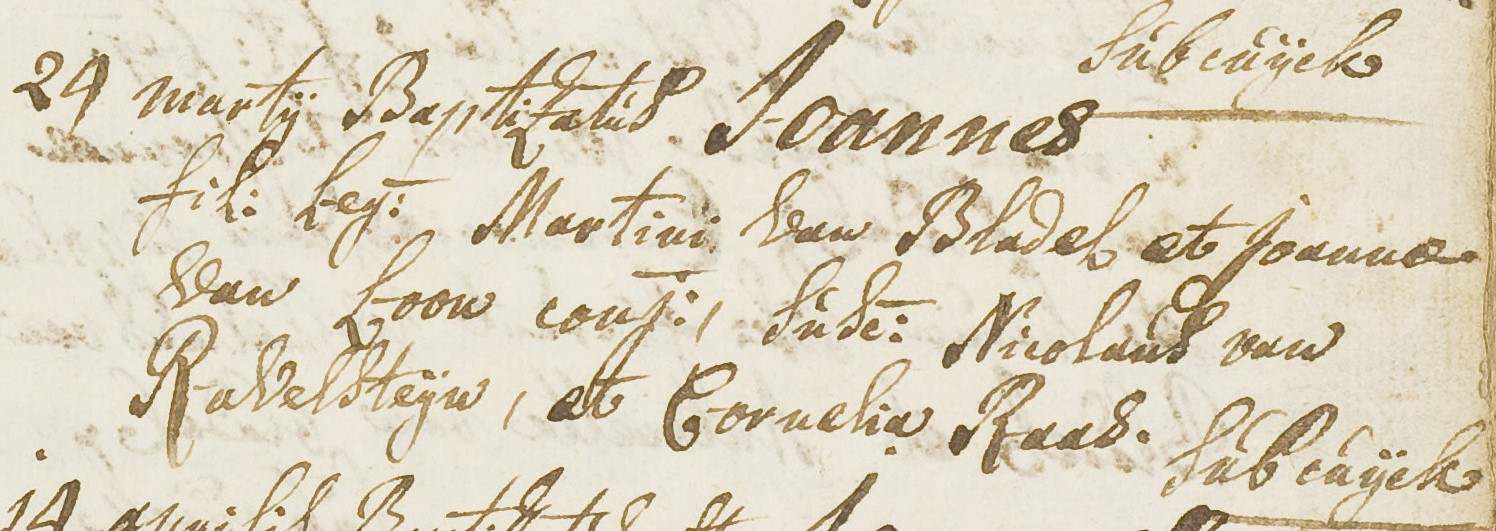 Sub cuijck
24 martij Baptizatus Joannes
fil: leg: Martini van Bladel et joanna
van Loon conj:, Susc: Nicolaus van
Ravelsteijn, et Cornelia Raas.
Sub Cuijck
14 aprilis